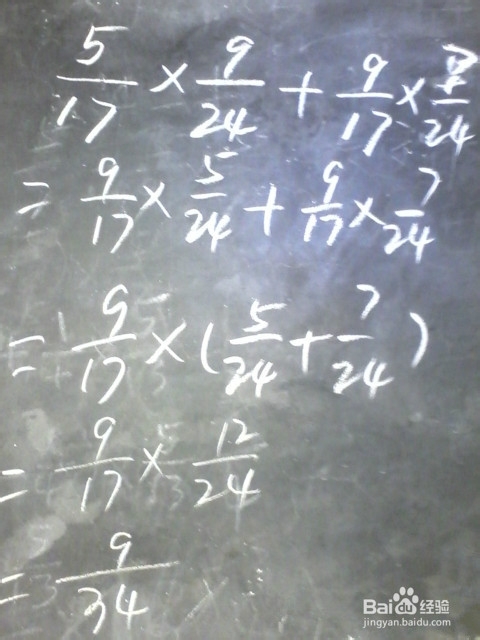 5/17 × 9/24 + 9/17 × 7/24
= 9/17 × 5/24 + 9/17 × 7/24
= 9/17 × (5/24 + 7/24)
= 9/17 × 12/24
= 9/34
Baidu 经验
jingyan.baidu.com